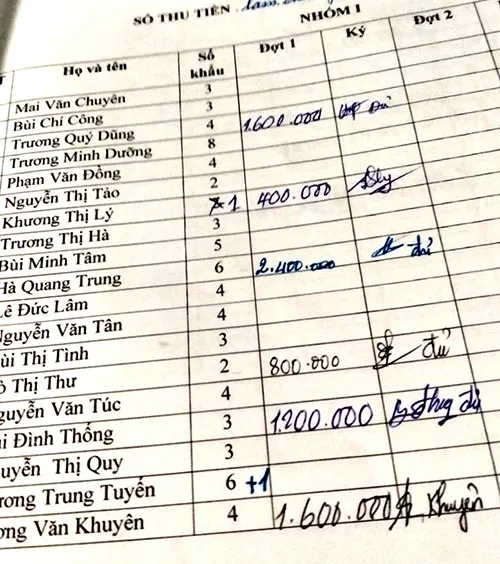 SỐ THU TIỀN
NHÓM I
Họ và tên Số khẩu Đợt 1 Ký Đợt 2
Mai Văn Chuyên 3
Bùi Chí Công 3
Trương Quý Dũng 4 1.600.000 đủ
Trương Minh Dưỡng 8
Phạm Văn Đồng 4
Nguyễn Thị Tảo 2
Khương Thị Lý 1 400.000
Trương Thị Hà 3
Bùi Minh Tâm 5
Hà Quang Trung 6 2.400.000 đủ
Lê Đức Lâm 4
guyễn Văn Tân 4
ùi Thị Tình 3
Thị Thư 2 800.000 đủ
guyễn Văn Túc 4
i Đình Thống 3 1.200.000 đủ
uyễn Thị Quy 3
ương Trung Tuyến 6 +1
ơng Văn Khuyên 4 1.600.000 Khuyên